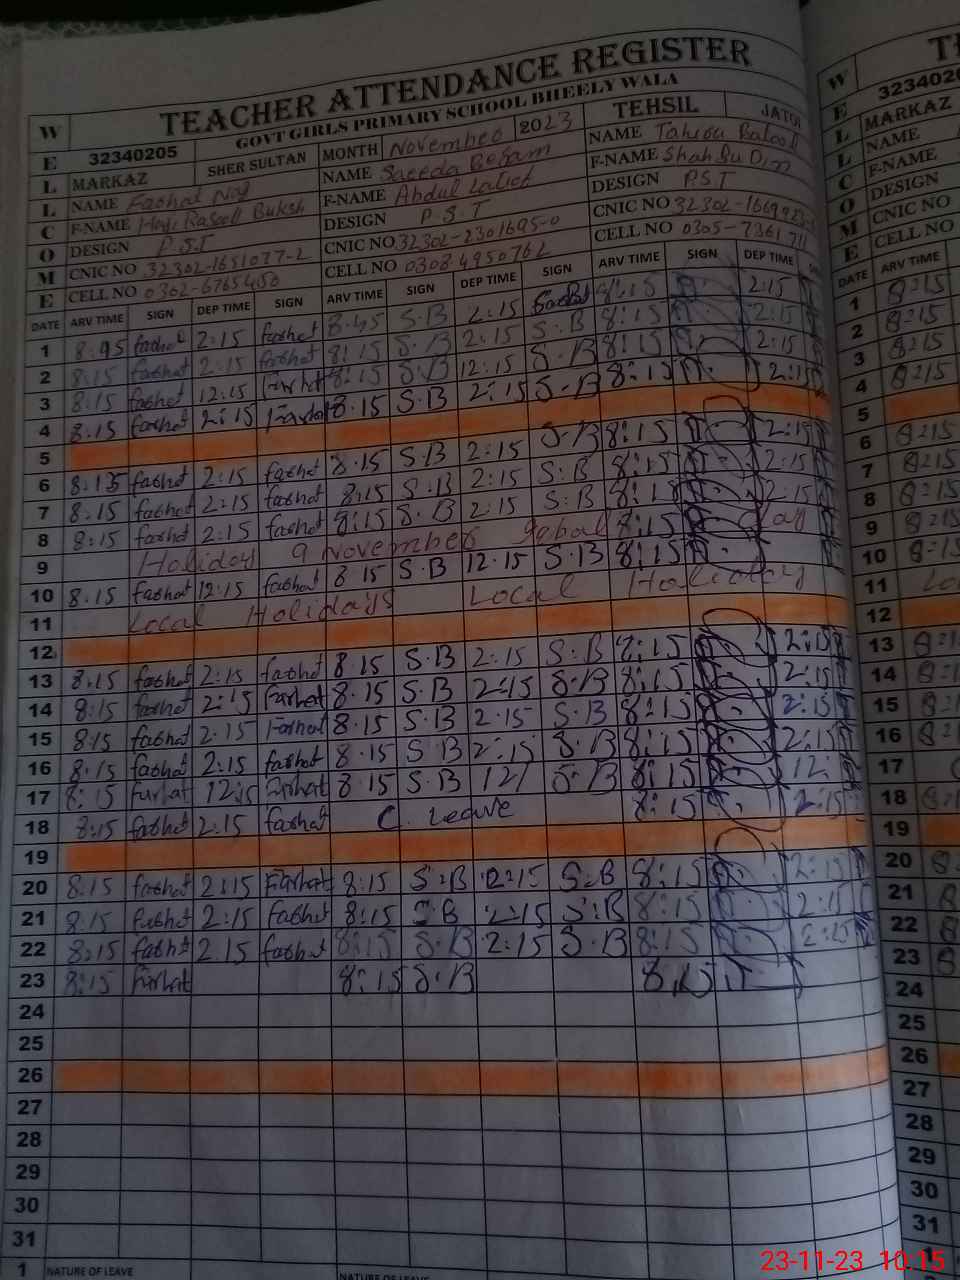 TEACHER ATTENDANCE REGISTER
GOVT GIRLS PRIMARY SCHOOL BHEELY WALA
WELLCOME
32340205 SHER SULTAN MONTH November 2023 TEHSIL JATOI
MARKAZ
NAME Farhat NAME Saeeda Begam NAME Tahira Batool
F-NAME Haji Rasool Buksh F-NAME Abdul Latief F-NAME Shah Bu Din
DESIGN P.S.T DESIGN P.S.T DESIGN P.S.T
CNIC NO 32302-1651077-2 CNIC NO 32302-2301695-0 CNIC NO 32302-1669923-
CELL NO 0302-6765450 CELL NO 0308 4950762 CELL NO 0305-7361711
DATE ARV TIME SIGN DEP TIME SIGN ARV TIME SIGN DEP TIME SIGN ARV TIME SIGN DEP TIME
1 farhat 2:15 farhat S.B 2:15 8:15 2:15
2 8:15 farhat 2:15 farhat 8:15 S.B 2:15 S.B 8:15 2:15
3 8:15 farhat 12:15 farhat 8:15 S.B 12:15 S.B 8:15 2:15
4 8:15 farhat 2:15 Farhat 8.15 S.B 2:15 S-B 8:15 2:15
5
6 farhat 2:15 farhat 8.15 S.B 2:15 S.B 8:15 2:15
7 8.15 farhat 2:15 farhat 8:15 S.B 2:15 S.B 8:15 2:15
8 8:15 farhat 2:15 farhat 8:15 S.B 2:15 S.B 8:15 2:15
9 Holiday 9 November Iqbal Day 8:15
10 8:15 farhat 12:15 farhat 8 15 S.B 12.15 S.B 8:15
11 Local Holidays Local Holiday
12
13 8:15 farhat 2:15 farhat 8.15 S.B 2:15 S.B 8:15 2:15
14 8:15 farhat 2:15 Farhat 8.15 S.B 2:15 S.B 8:15 2:15
15 8:15 farhat 2.15 Farhat 8.15 S.B 2.15 S.B 8:15 2:15
16 8:15 farhat 2:15 farhat 8.15 S.B 2:15 S.B 8:15 2:15
17 8:15 Farhat 12:15 Farhat 8.15 S.B 12/ S.B 8:15 12:
18 8:15 farhat 2:15 farhat C. Leave 8:15 2:15
19
20 8:15 farhat 2:15 Farhat 8:15 S:B 2:15 S.B 8:15 2:15
21 8:15 farhat 2:15 farhat 8:15 S:B 2:15 S:B 8:15 2:15
22 8:15 farhat 2.15 farhat 8:15 S.B 2:15 S.B 8:15 2:15
23 8:15 Farhat 8:15 S.B 8:15
24
25
26
27
28
29
30
31
1 NATURE OF LEAVE NATURE OF LEAVE
WELCOME
MARKAZ
NAME
F-NAME
DESIGN
CNIC NO
CELL NO
DATE ARV TIME
1 8:15
2 8:15
3 8:15
4 8:15
5
6 8:15
7 8:15
8 8:15
9 8:15
10 8:15
11
12
13 8:15
14
15
16
17
18
19
20
21
22
23
24
25
26
27
28
29
30
31
23-11-23 10:15